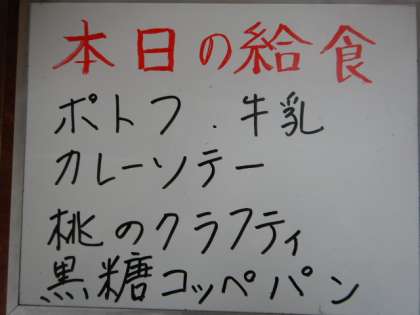 本日の給食
ポトフ．牛乳
カレーソテー
桃のクラフティ
黒糖コッペパン